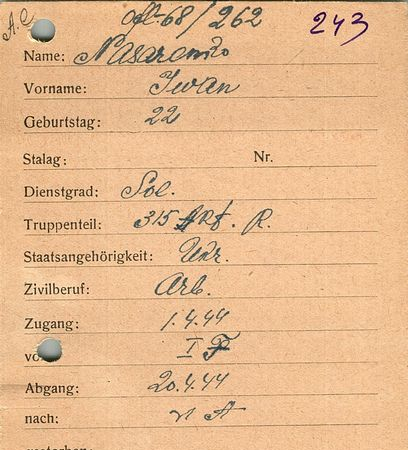 A.C
68/262 243
Name: Nasarenko
Vorname: Iwan
Geburtstag: 22
Stalag: Nr.
Dienstgrad: Sol.
Truppenteil: 315 Art. R.
Staatsangehörigkeit: Ukr.
Zivilberuf: Arb.
Zugang: 1.4.44
I F
Abgang: 20.4.44
nach: A